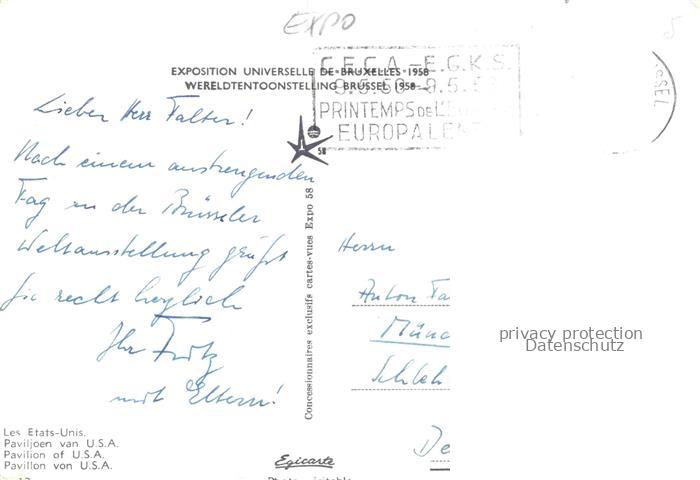 EXPO
EXPOSITION UNIVERSELLE DE BRUXELLES 1958
WERELDTENTOONSTELLING BRUSSEL 1958
C.E.C.A. - E.G.K.S.
PRINTEMPS DE L'EU
EUROPA LEN
SSEL
5
58
Lieber Herr Falter!
Nach einem anstrengenden
Tag in der Brüsseler
Weltausstellung grüßt
Sie recht herzlich
Ihr Fritz
mit Eltern!
Concessionnaires exclusifs cartes-vues Expo 58
Herrn
Anton Fa
Münc
Schleh
De
privacy protection
Datenschutz
Les Etats-Unis.
Paviljoen van U.S.A.
Pavilion of U.S.A.
Pavillon von U.S.A.
Egicarte